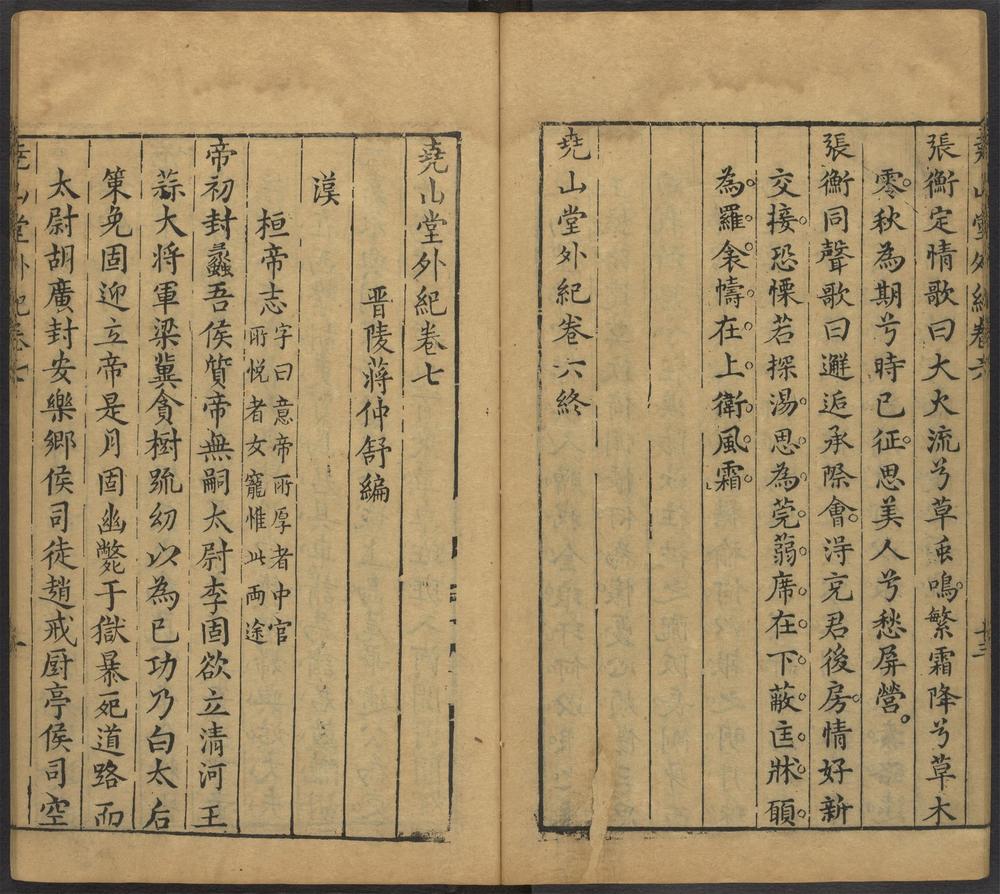 堯山堂外紀卷六
十三
張衡定情歌曰大火流兮草虫鳴繁霜降兮草木
零秋為期兮時已征思美人兮愁屏營
張衡同聲歌曰邂逅承際會淂充君後房情好新
交接恐慄若探湯思為莞蒻席在下蔽匡牀願
為羅衾幬在上衛風霜
堯山堂外紀卷六終
堯山堂外紀卷七
晋陵蔣仲舒編
漢
桓帝志字曰意帝所厚者中官
所悦者女寵惟此両途
帝初封蠡吾侯質帝無嗣太尉李固欲立清河王
蒜大将軍梁冀貪樹疏幼以為已功乃白太后
策免固迎立帝是月固幽斃于獄暴死道路而
太尉胡廣封安樂郷侯司徒趙戒厨亭侯司空
堯山堂外紀卷七
一